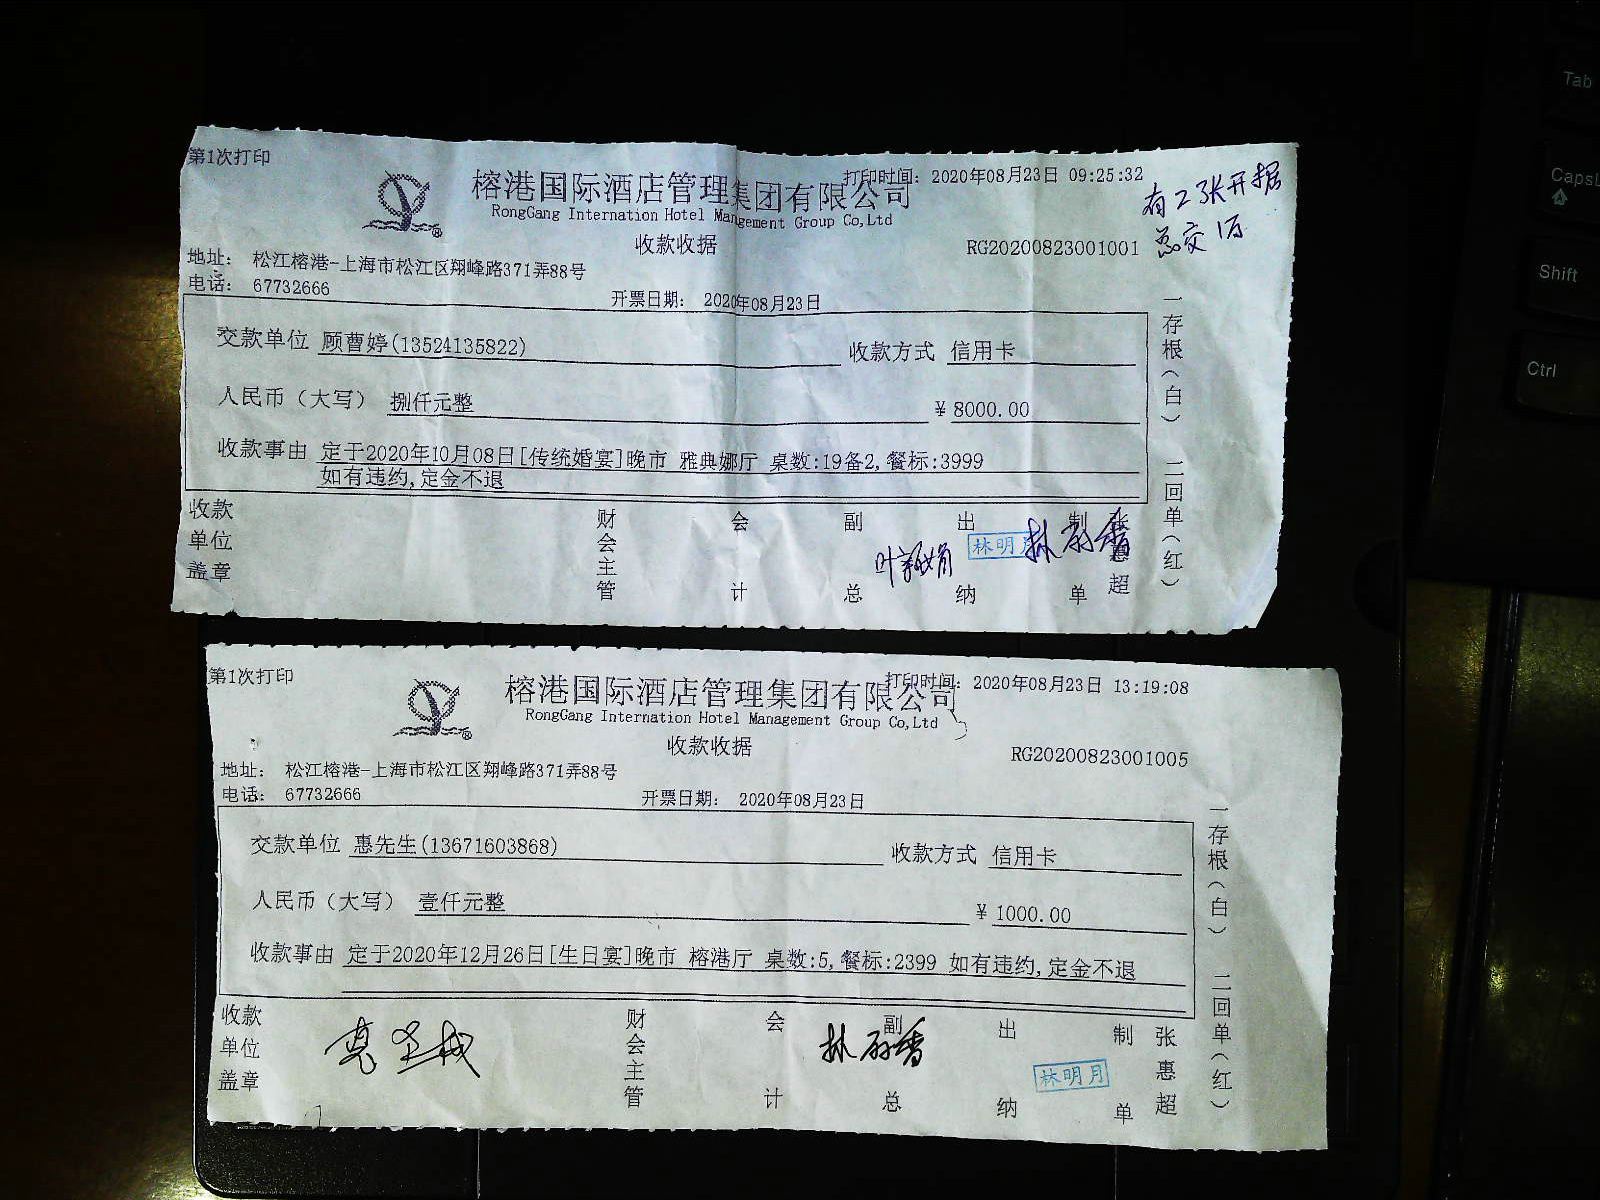 第1次打印
打印时间： 2020年08月23日 09:25:32
榕港国际酒店管理集团有限公司
RongGang Internation Hotel Management Group Co,Ltd
有2张开据
总交1万
收款收据
RG20200823001001
地址： 松江榕港-上海市松江区翔峰路371弄88号
电话： 67732666
开票日期： 2020年08月23日
交款单位 顾曹婷(13524135822) 收款方式 信用卡
人民币（大写） 捌仟元整 ¥ 8000.00
收款事由 定于2020年10月08日[传统婚宴]晚市 雅典娜厅 桌数:19备2,餐标:3999
如有违约,定金不退
收款单位盖章 财会主管 会计 副总 出纳 林明月 制单 张惠超
一存根（白） 二回单（红）
第1次打印
打印时间： 2020年08月23日 13:19:08
榕港国际酒店管理集团有限公司
RongGang Internation Hotel Management Group Co,Ltd
收款收据
RG20200823001005
地址： 松江榕港-上海市松江区翔峰路371弄88号
电话： 67732666
开票日期： 2020年08月23日
交款单位 惠先生(13671603868) 收款方式 信用卡
人民币（大写） 壹仟元整 ¥ 1000.00
收款事由 定于2020年12月26日[生日宴]晚市 榕港厅 桌数:5,餐标:2399 如有违约,定金不退
收款单位盖章 财会主管 会计 副总 出纳 林明月 制单 张惠超
一存根（白） 二回单（红）
Tab
CapsL
Shift
Ctrl